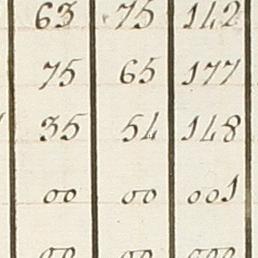 63 75 142
75 65 177
35 54 148
00 00 001